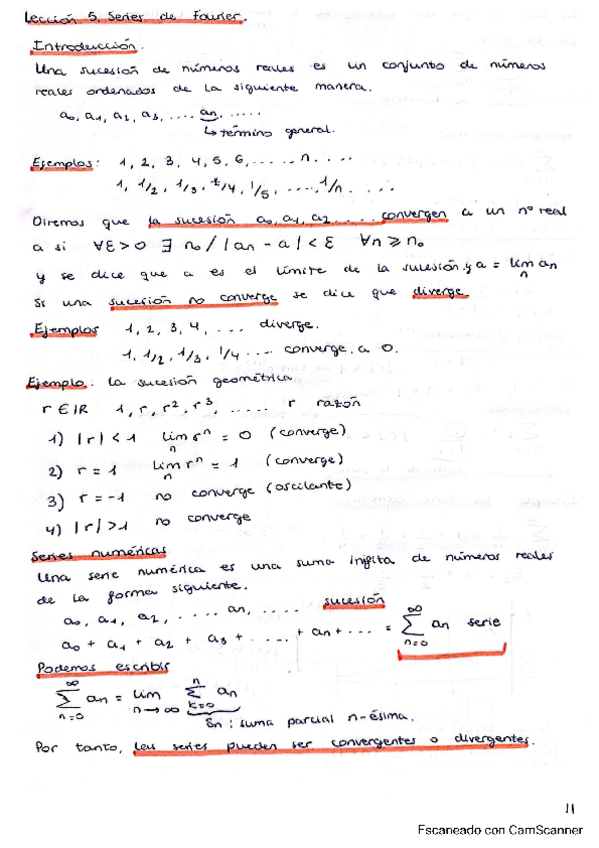 Lección 5. Series de Fourier.
Introducción.
Una sucesión de números reales es un conjunto de números
reales ordenados de la siguiente manera.
a₀, a₁, a₂, a₃, .... aₙ, .....
↳ término general.
Ejemplos: 1, 2, 3, 4, 5, 6, ..... n. ...
1, 1/2, 1/3, 1/4, 1/5, ...., 1/n. ...
Diremos que la sucesión a₀, a₁, a₂ .... convergen a un nº real
a si ∀ε>0 ∃ n₀ / |aₙ - a| < ε ∀n ≥ n₀
y se dice que a es el límite de la sucesión y a = lim aₙ
n
Si una sucesión no converge se dice que diverge.
Ejemplos 1, 2, 3, 4, ... diverge.
1, 1/2, 1/3, 1/4 .... converge a 0.
Ejemplo: la sucesión geométrica.
r ∈ IR 1, r, r², r³, ..... r razón
1) |r| < 1 lim rⁿ = 0 (converge)
n
2) r = 1 lim rⁿ = 1 (converge)
n
3) r = -1 no converge (oscilante)
4) |r| > 1 no converge
Series numéricas
Una serie numérica es una suma infinita de números reales
de la forma siguiente.
a₀, a₁, a₂, .... aₙ, ..... sucesión
a₀ + a₁ + a₂ + a₃ + .... + aₙ + ... = ∞ Σ n=0 aₙ serie
Podemos escribir
∞ Σ n=0 aₙ = lim n→∞ n Σ k=0 aₙ
Sn: suma parcial n-ésima.
Por tanto, las series pueden ser convergentes o divergentes.
11
Escaneado con CamScanner